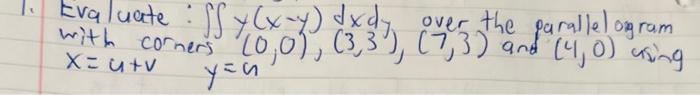 1. Evaluate : ∬ y(x-y) dxdy over the parallelogram
with corners (0,0), (3,3), (7,3) and (4,0) using
x = u+v y=u